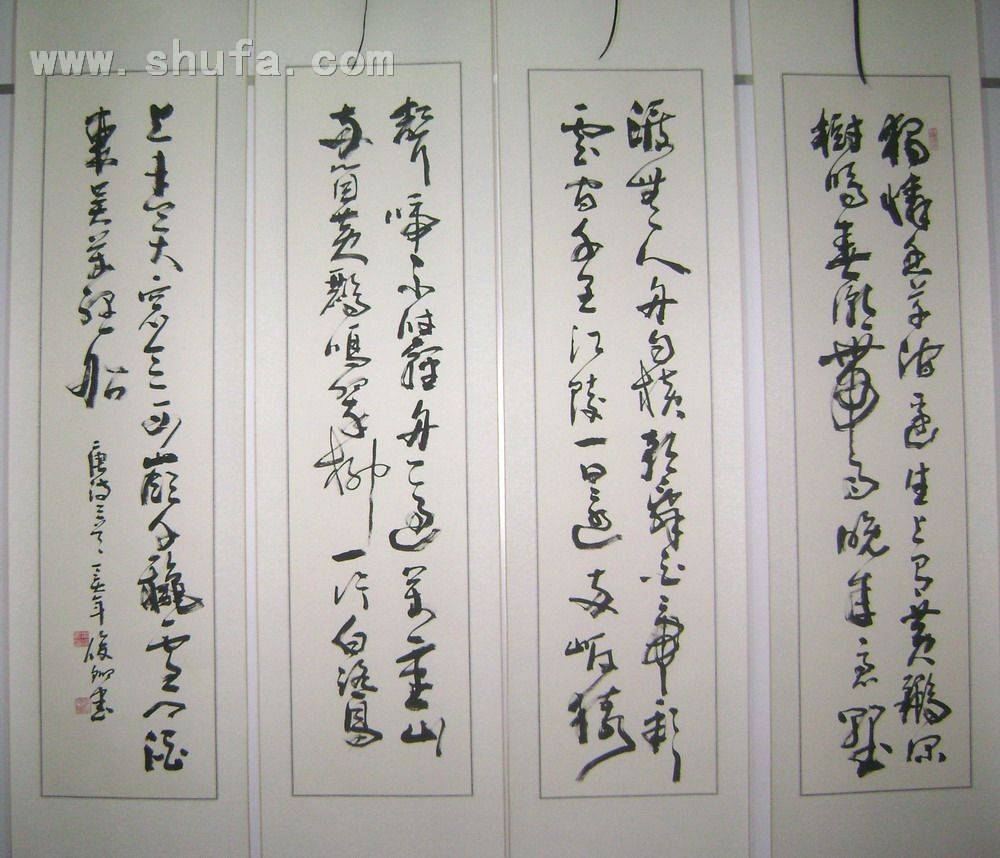 www.shufa.com
獨憐幽草澗邊生上有黄鸝深
樹鳴春潮帶雨晚來急野
渡無人舟自横朝辞白帝彩
雲間千里江陵一日還两岸猿
聲啼不住輕舟已過萬重山
两箇黄鸝鳴翠柳一行白鷺
上青天窗含西嶺千秋雪門泊
東吴萬里船
唐诗三首 年 書